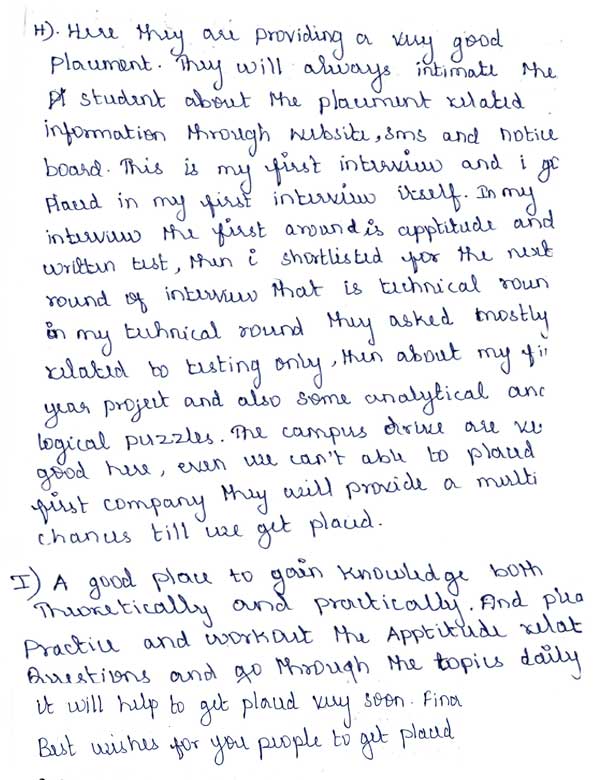 H). Here they are providing a very good
Placement. They will always intimate the
student about the placement related
information through website, sms and notice
board. This is my first interview and i
Placed in my first interview itself. In my
interview the first around is apptitude and
written test, then i shortlisted for the next
round of interview that is technical roun
in my technical round they asked mostly
related to testing only, then about my fi
year project and also some analytical anc
logical puzzles. The campus drive are ve
good here, even we can't able to placed
first company they will provide a multi
chances till we get placed.
I) A good place to gain knowledge both
Theoretically and practically. And plea
Practice and workout the Apptitude relat
Questions and go through the topics daily
it will help to get placed very soon. Fina
Best wishes for you people to get placed